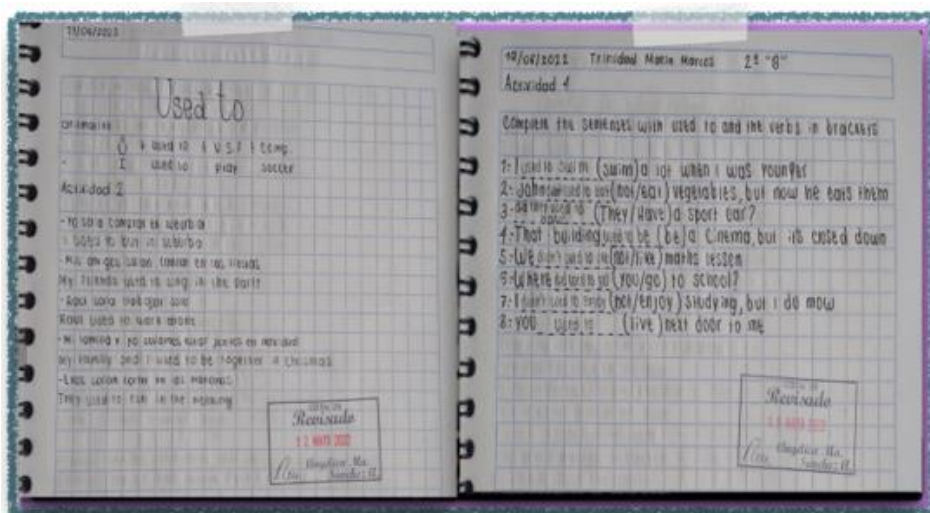 Used to
used to V.S.P. Comp.
I used to play soccer
Actividad 2
- Yo solía comprar en
I used to buy in suburbia
- Mis amigos solían cantar en las fiestas
My friends used to sing in the party
- Raul solía trabajar solo
Raul used to work alone
- Mi familia y yo solíamos estar juntos en navidad
My family and I used to be together in Christmas
- Ellos solían correr en las mañanas
They used to run in the morning
Revisado
12 MAYO 2022
Angélica Ma.
Sánchez
Trinidad Marin Marcos 2º "B"
Actividad 1
Complete the sentenses with used to and the verbs in brackets
1- I used to swim (swim) a lot when I was younger
2- John (not/eat) vegetables, but now he eats them
3- (They/Have) a sport car?
4- That building used to be (be) a Cinema, but its closed down
5- We didn't used to (not/like) maths lessen
6- Where (you/go) to school?
7- I didn't used to enjoy (not/enjoy) Studying, but I do mow
8- you used to (live) next door to me
Revisado
MAYO 2022
Angélica Ma.
Sánchez